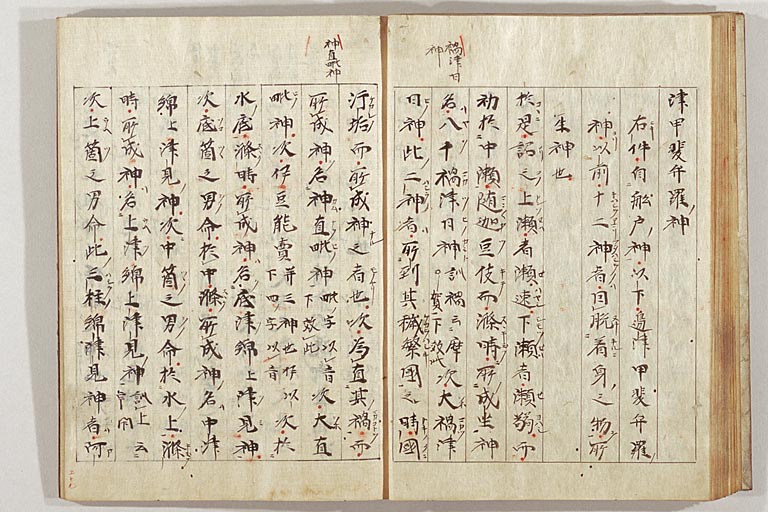 禍津日
神
津甲斐弁羅神
右件自舩戸神以下邊津甲斐弁羅
神以前十二神者因脱着身之物所
生神也
於是詔之上瀬者瀬速下瀬者瀬弱而
初於中瀬随迦豆伎而滌時所成坐神
名八十禍津日神訓禍云摩賀下效此次大禍津
日神此二神者所到其穢繁國之時因
神直毗神
汙垢而所成神之者也次為直其禍而
所成神名神直毗神毗字以音下效此次大直
毗神次伊豆能賣并三神也伊以下四字以音次於
水底滌時所成神名底津綿上津見神
次底箇之男命於中滌所成神名中津
綿上津見神次中箇之男命於水上滌
時所成神名上津綿上津見神訓上云宇閇
次上箇之男命此三柱綿津見神者阿